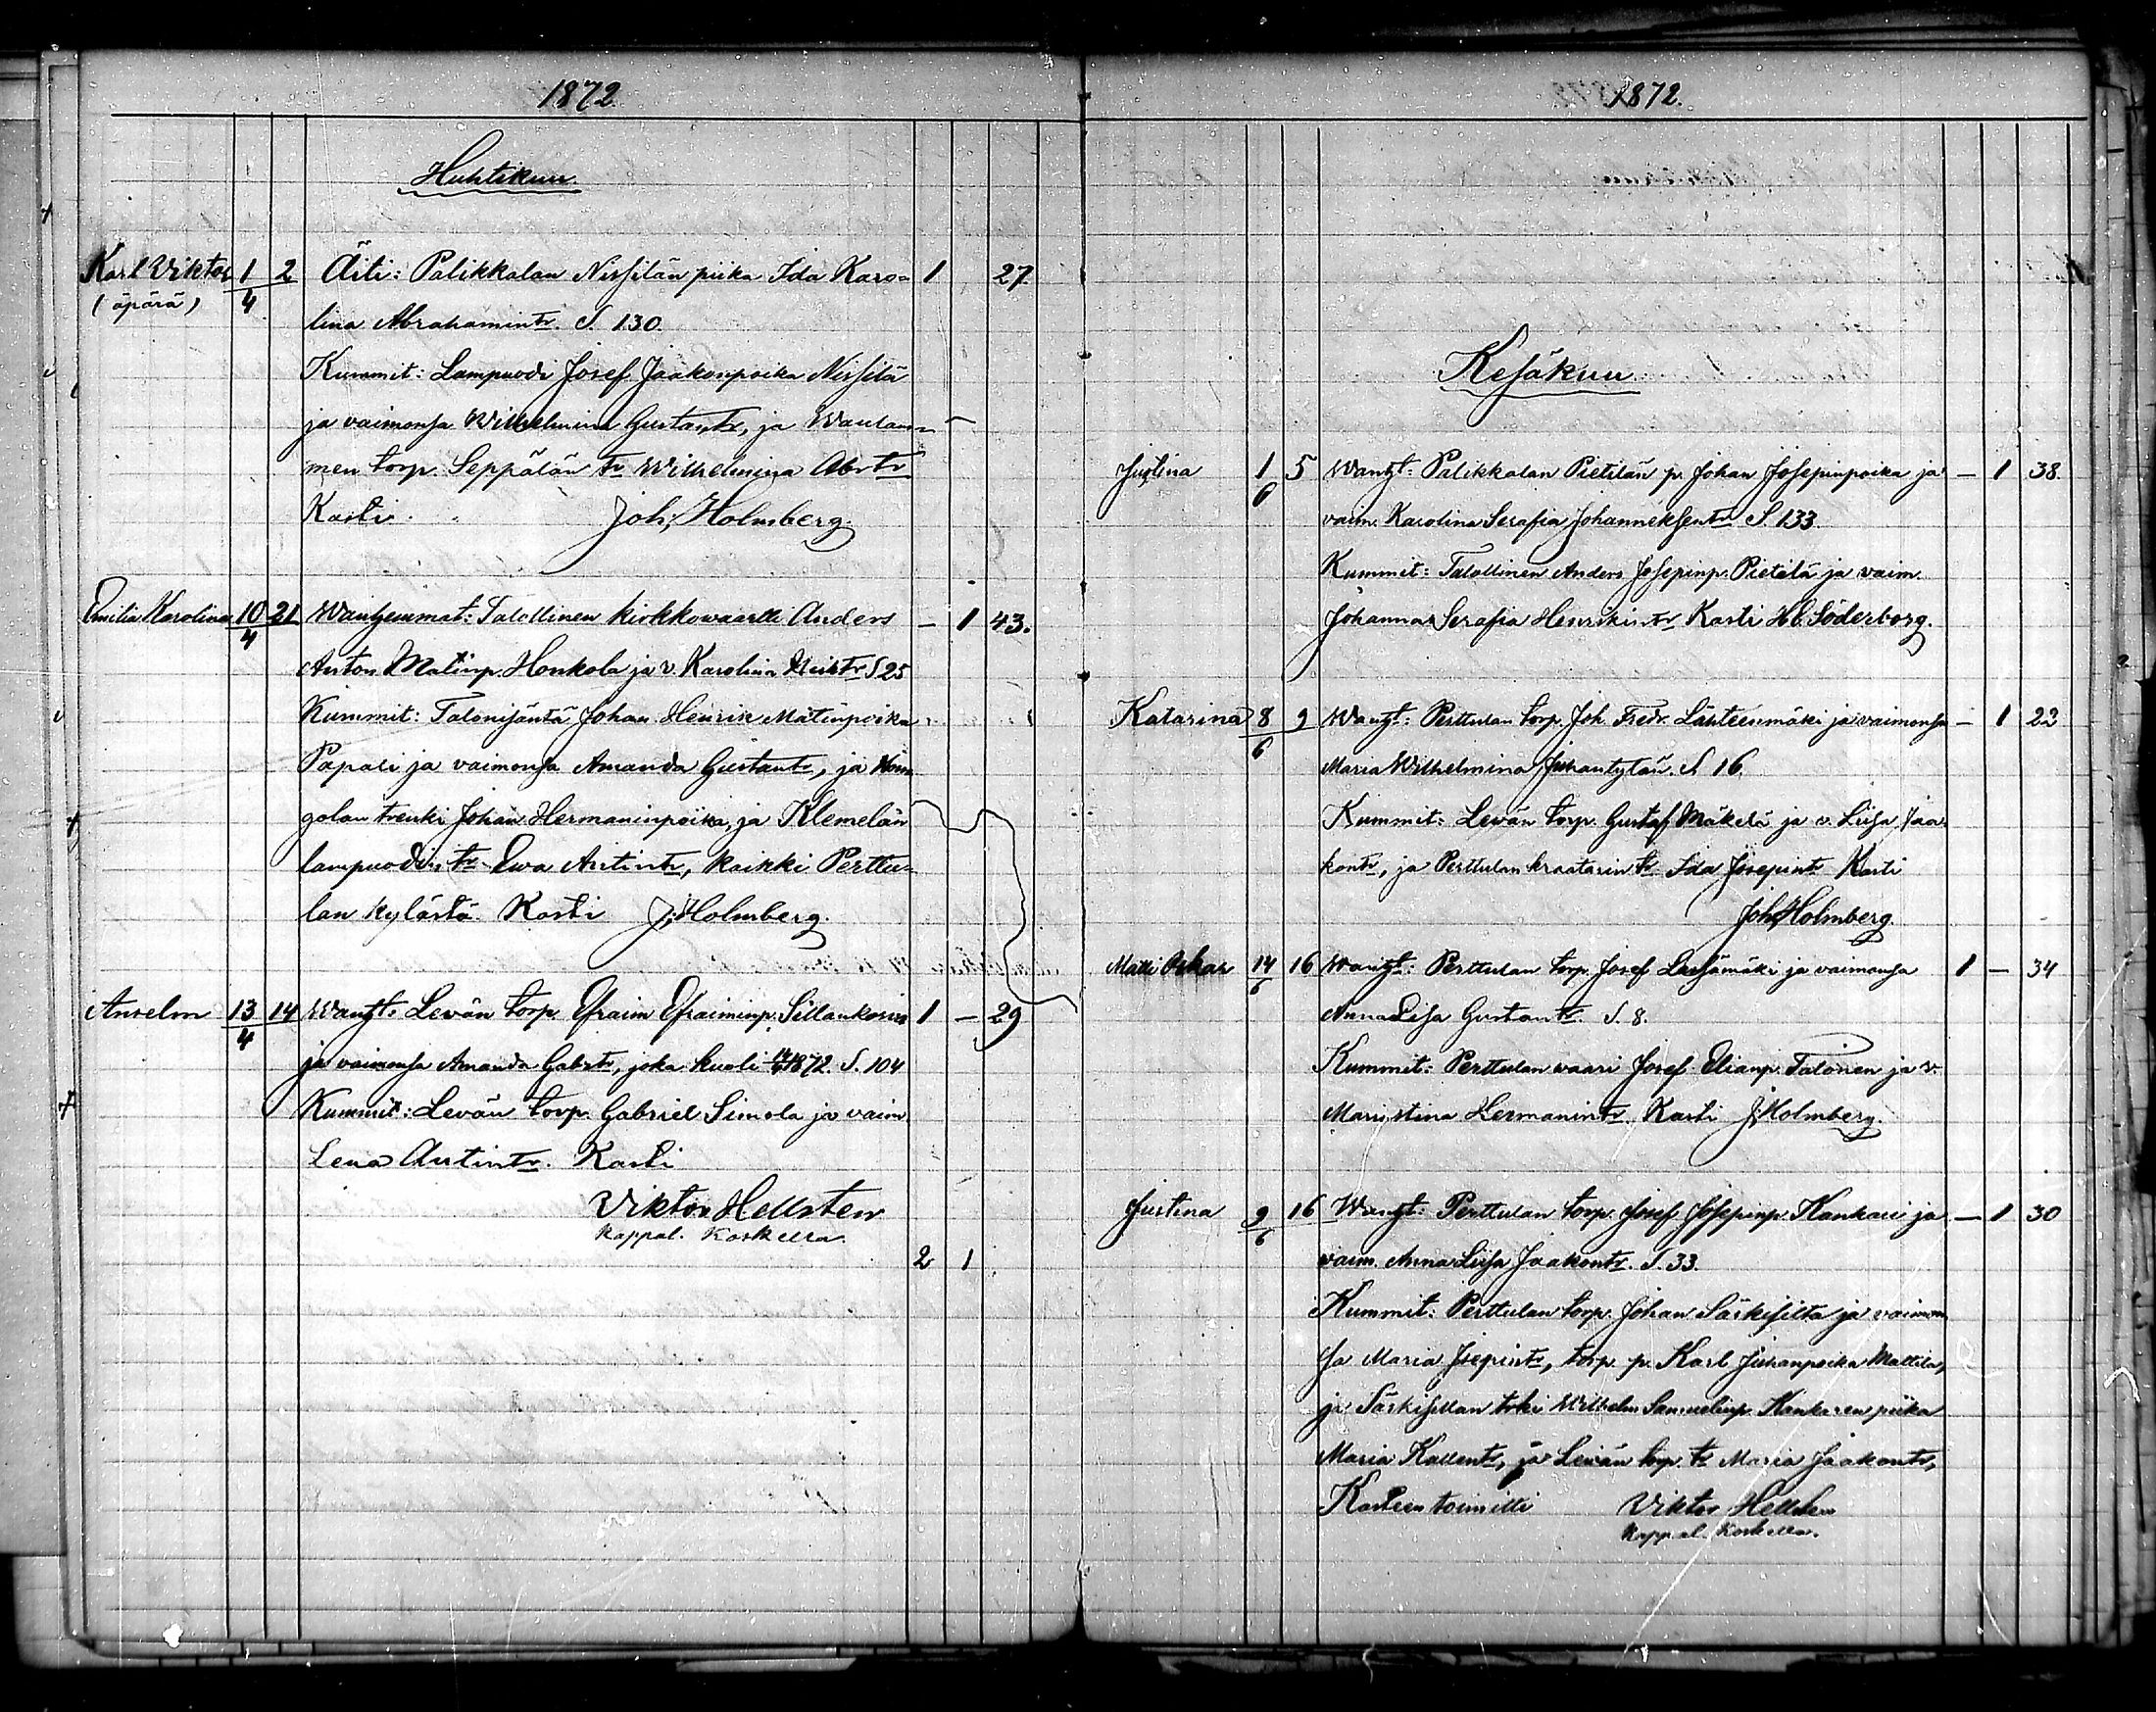 1872.
Huhtikuu
Karl Viktor 1/4 2 Äiti: Palikkalan Nissilän piika Ida Karo= 1 27.
(äpärä) lina Abrahamintr. S. 130.
Kummit: Lampuodi Josef Jaakonpoika Nissilä
ja vaimonsa Wilhelmina Gustantr, ja
men torp. Seppälän tr Wilhelmina Abrtr
Kasti Joh. Holmberg.
Emilia Karolina 10/4 21 Wanhemmat: Talollinen kirkkowaartti Anders — 1 43.
Anton Matinp. Honkola ja v. Karolina S 25
Kummit: Talonisäntä Johan Henrik Matinpoika
Papari ja vaimonsa Amanda Gustantr, ja
golan trenki Johan Hermaninpoika, ja Klemelän
lampuodin tr Ewa Antintr, kaikki Perttu=
lan kylästä. Kasti J. Holmberg.
Anselm 13/4 14 Wanht. Levän torp. Efraim Efraiminp. Sillankorva 1 — 29
ja vaimonsa Amanda Gabrtr, joka kuoli 1872. S. 104
Kummit: Levän torp. Gabriel Simola ja vaim.
Lena Antintr. Kasti
Viktor Hellsten
Kappal. Koskella.
2 1
1872.
Kesäkuu
Justina 1/6 5 Wanht: Palikkalan Pietilän p. Johan Josepinpoika ja — 1 38.
vaim. Karolina Serafia Johanneksentr S. 133.
Kummit: Talollinen Anders Josepinp. Pietilä ja vaim.
Johanna Serafia Henrikintr Kasti Söderborg.
Katarina 8/6 9 Wanht: Perttulan torp. Joh. Fredr. Lähteenmäki ja vaimonsa — 1 23
Maria Wilhelmina Juhantytär. S. 16.
Kummit: Levän torp. Gustaf Mäkelä ja v. Liisa Jaa
kontr, ja Perttulan kraatarin tr. Ida Josepintr Kasti
Joh. Holmberg.
Matti Oskar 14/6 16 Wanht: Perttulan torp. Josef ja vaimonsa 1 — 34
Anna Lisa Gustantr. S. 8.
Kummit: Perttulan waari Josef Elianp. Talonen ja v.
Maristina Hermanintr. Kasti J. Holmberg.
Justina 9/6 16 Wanht: Perttulan torp. Josef Josepinp. Kankari ja — 1 30
vaim. Anna Liisa Jaakontr. S. 33.
Kummit: Perttulan torp. Johan Särkisilta ja vaimon
sa Maria Josepintr, torp. p. Karl Juhanpoika Mattila,
ja Särkisillan trki Wilhelm Samuelinp. Kankaren piika
Maria Kallentr, ja Levän torp. tr Maria Jaakontr,
Kasteen toimitti Viktor Hellsten
Kappal. Koskella.